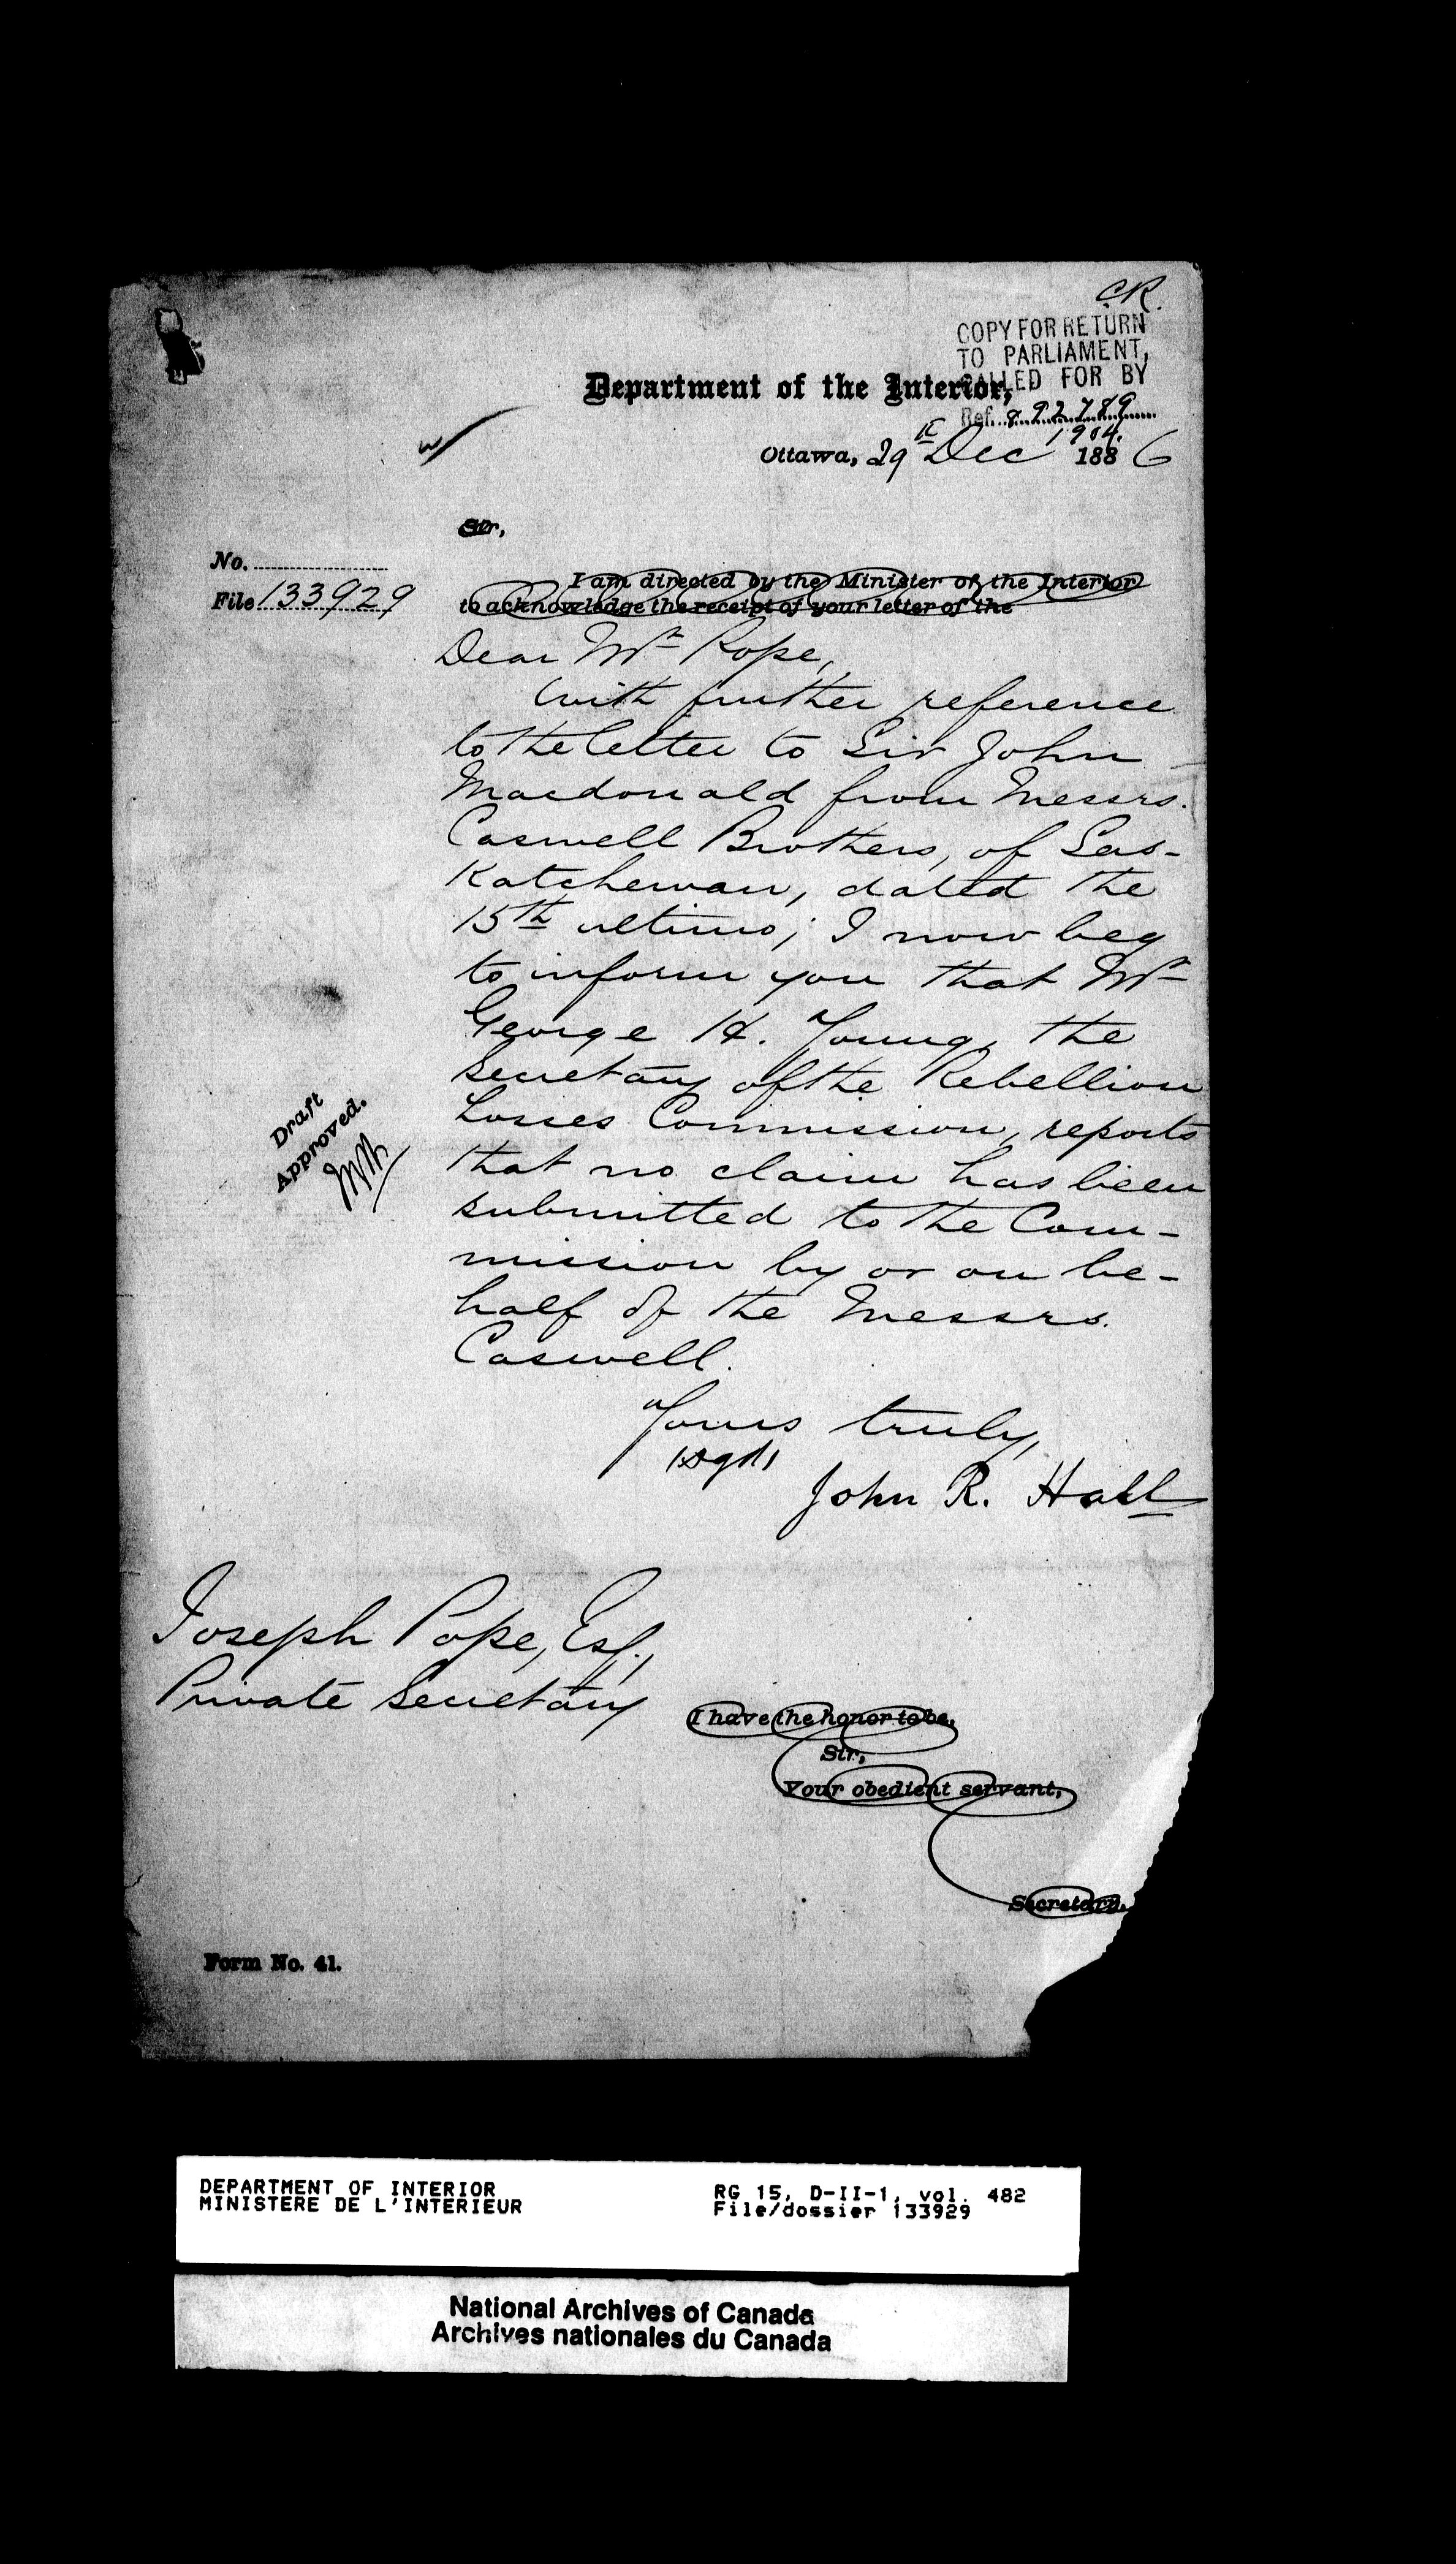 C.R.
COPY FOR RETURN
TO PARLIAMENT,
CALLED FOR BY
Department of the Interior,
Ref. 892789
1904.
Ottawa, 29th Dec 1886
Sir,
No.
File 133929
I am directed by the Minister of the Interior
to acknowledge the receipt of your letter of the
Dear Mr Pope,
With further reference
to the letter to Sir John
Macdonald from Messrs.
Caswell Brothers, of Sas-
Katchewan, dated the
15th ultimo; I now beg
to inform you that Mr
George H. Young, the
Secretary of the Rebellion
Losses Commission, reports
that no claim has been
submitted to the Com-
mission by or on be-
half of the Messrs.
Caswell.
Draft
Approved.
Yours truly,
(sgd)
John R. Hall
Joseph Pope, Esq.,
Private Secretary
I have the honor to be,
Sir,
Your obedient servant,
Secretary.
Form No. 41.
DEPARTMENT OF INTERIOR
MINISTERE DE L'INTERIEUR
RG 15, D-II-1, vol. 482
File/dossier 133929
National Archives of Canada
Archives nationales du Canada